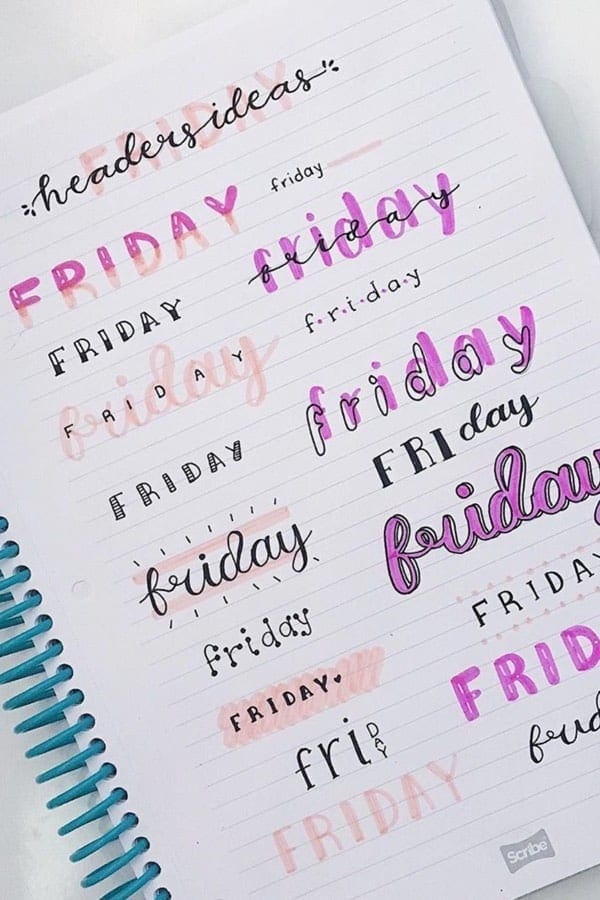 FRIDAY
headers ideas
friday
FRIDAY
friday
friday
FRIDAY
f.r.i.d.a.y
friday
FRIDAY
friday
FRIday
FRIDAY
friday
friday
FRIDAY
friday
FRID
FRIDAY
fri DAY
FRIDAY
Scribe